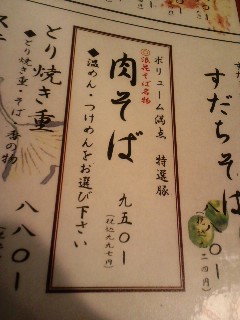 すだちそ
二四円
ボリューム満点 特選豚
浪花そば名物
肉そば
九五〇
(税込九九七円)
◆温めん・つけめんをお選び下さい
とり焼き重
◆とり焼き重・そば・香の物
八八〇